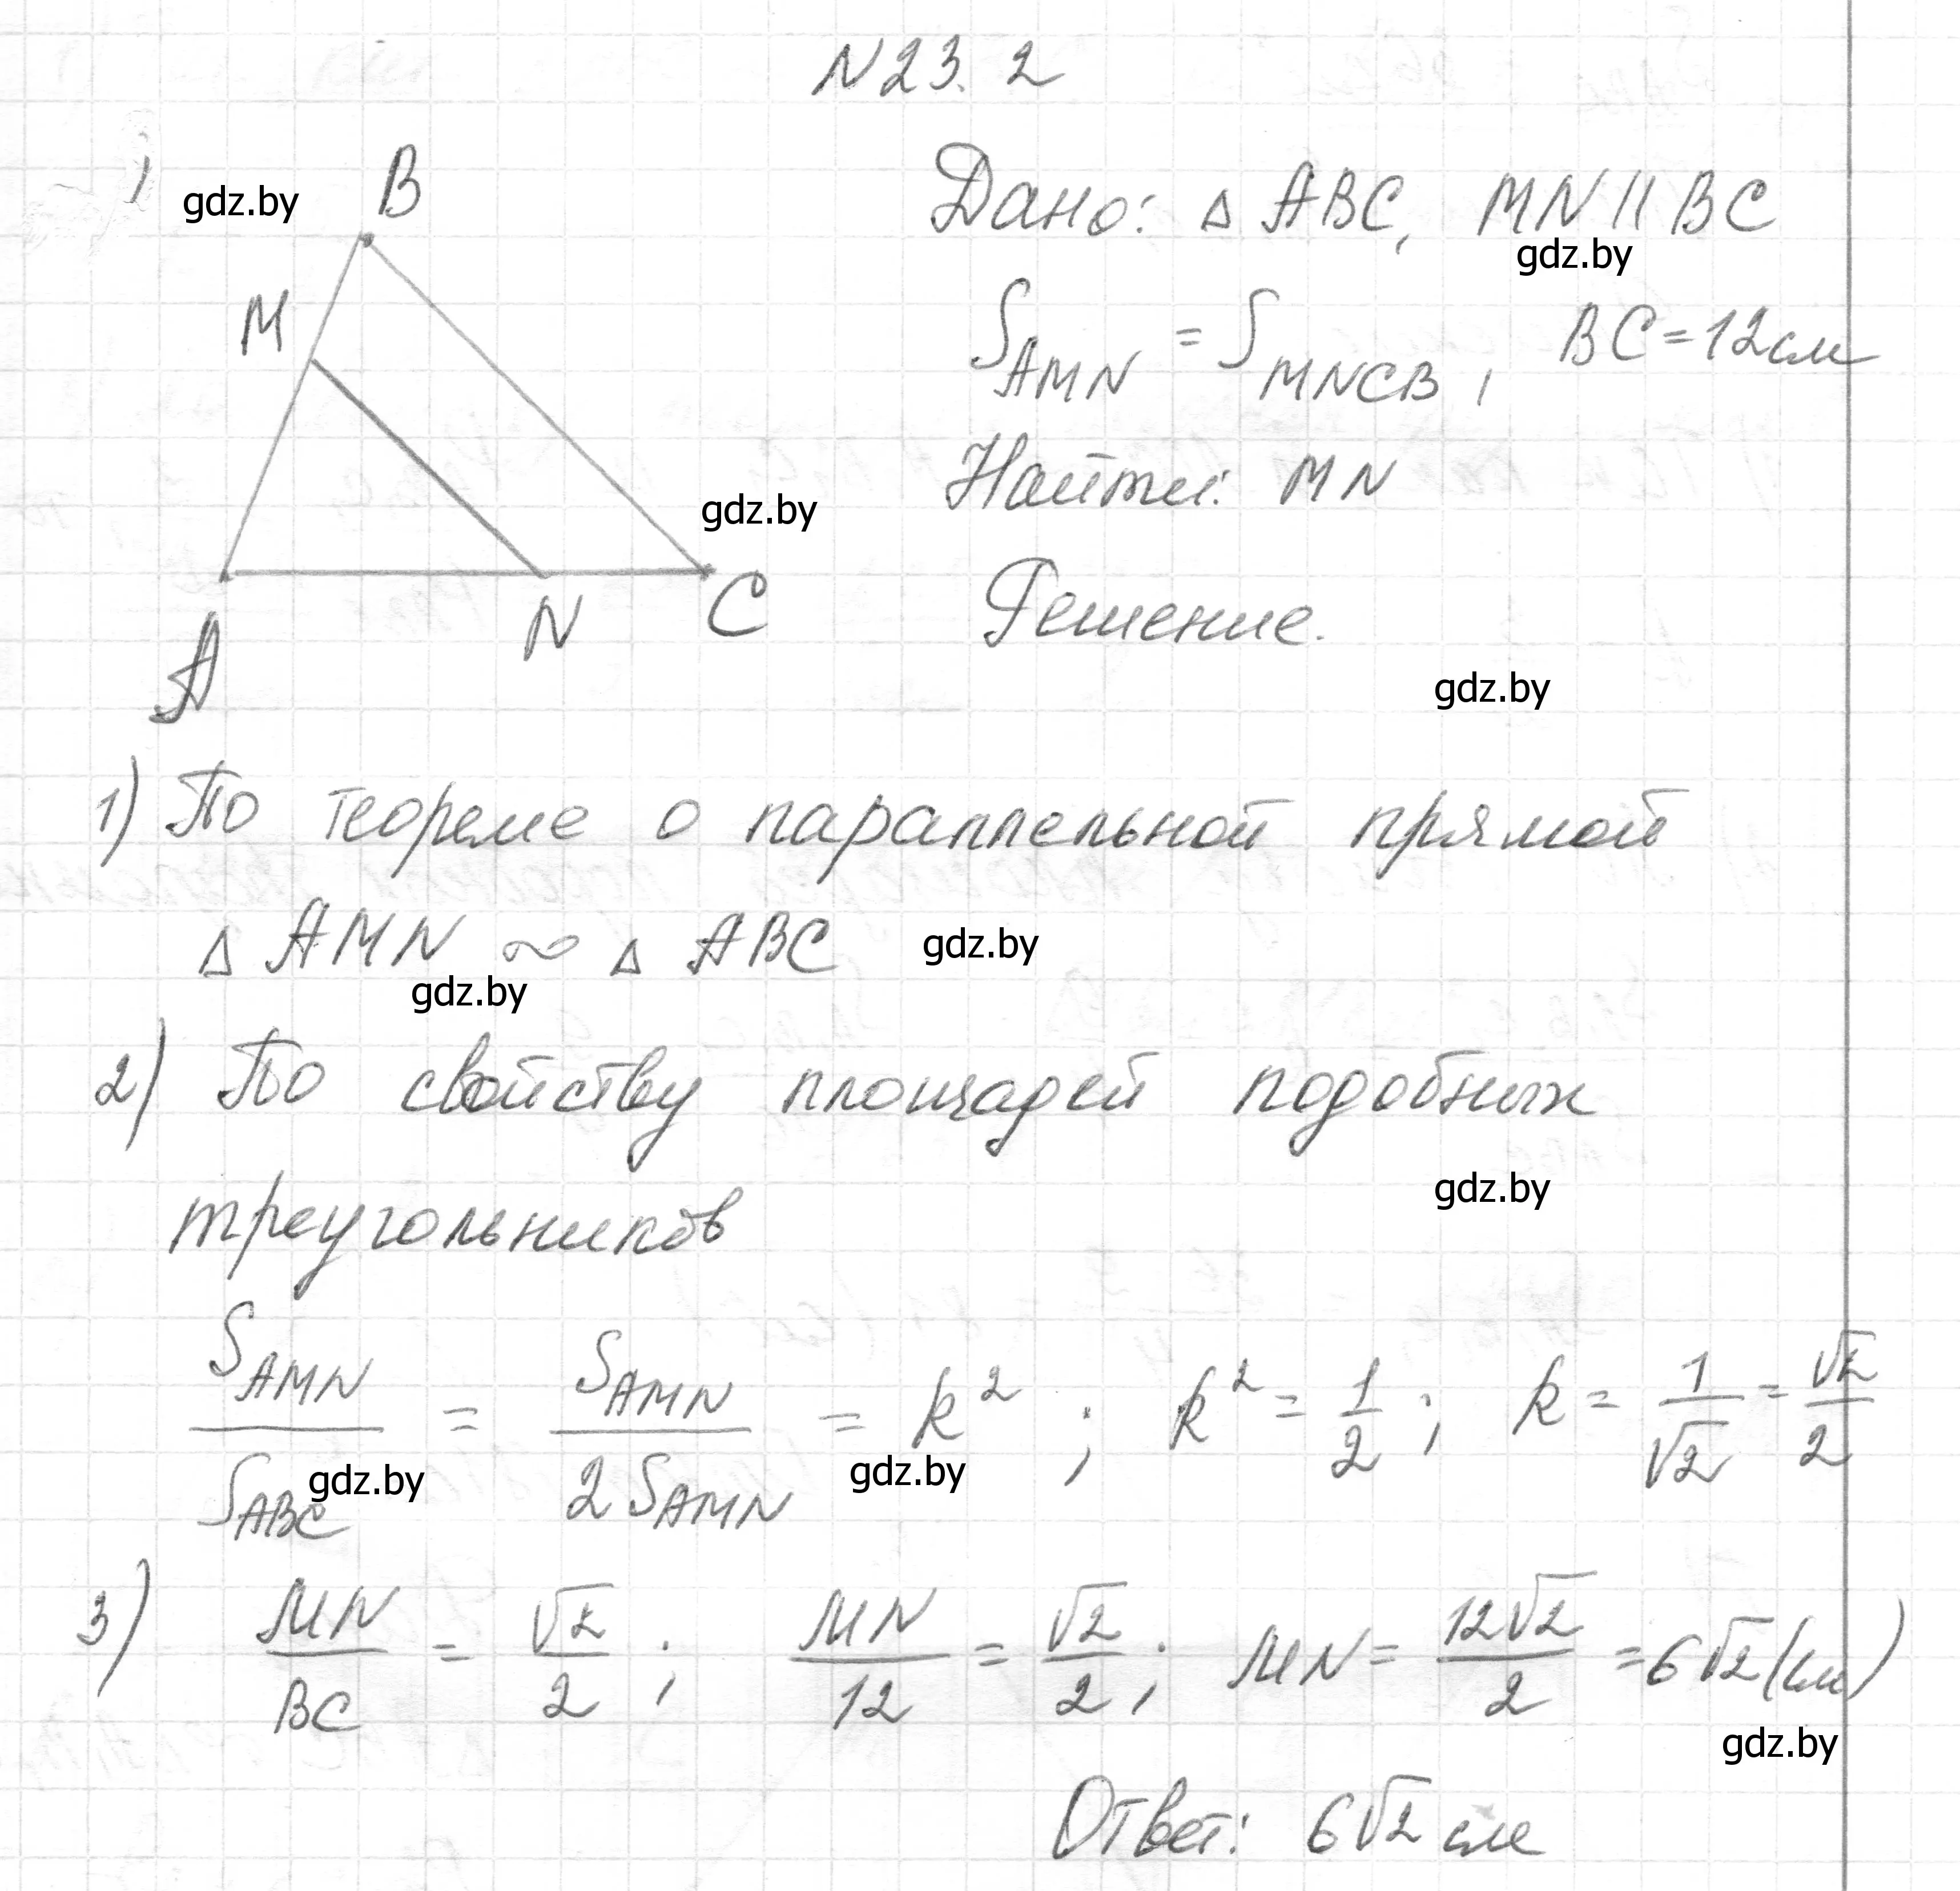 N23.2
1
gdz.by
B
M
A
N
C
gdz.by
Дано: △ ABC, MN || BC
gdz.by
S_AMN = S_MNCB, BC = 12 см
Найти: MN
Решение.
gdz.by
1) По теореме о параллельной прямой
△ AMN ∾ △ ABC gdz.by
gdz.by
2) По свойству площадей подобных
gdz.by
треугольников
S_AMN / S_ABC = S_AMN / 2 S_AMN = k² ; k² = 1/2 ; k = 1/√2 = √2/2
gdz.by gdz.by
3) MN/BC = √2/2 ; MN/12 = √2/2 ; MN = 12√2/2 = 6√2 (см)
gdz.by
Ответ: 6√2 см